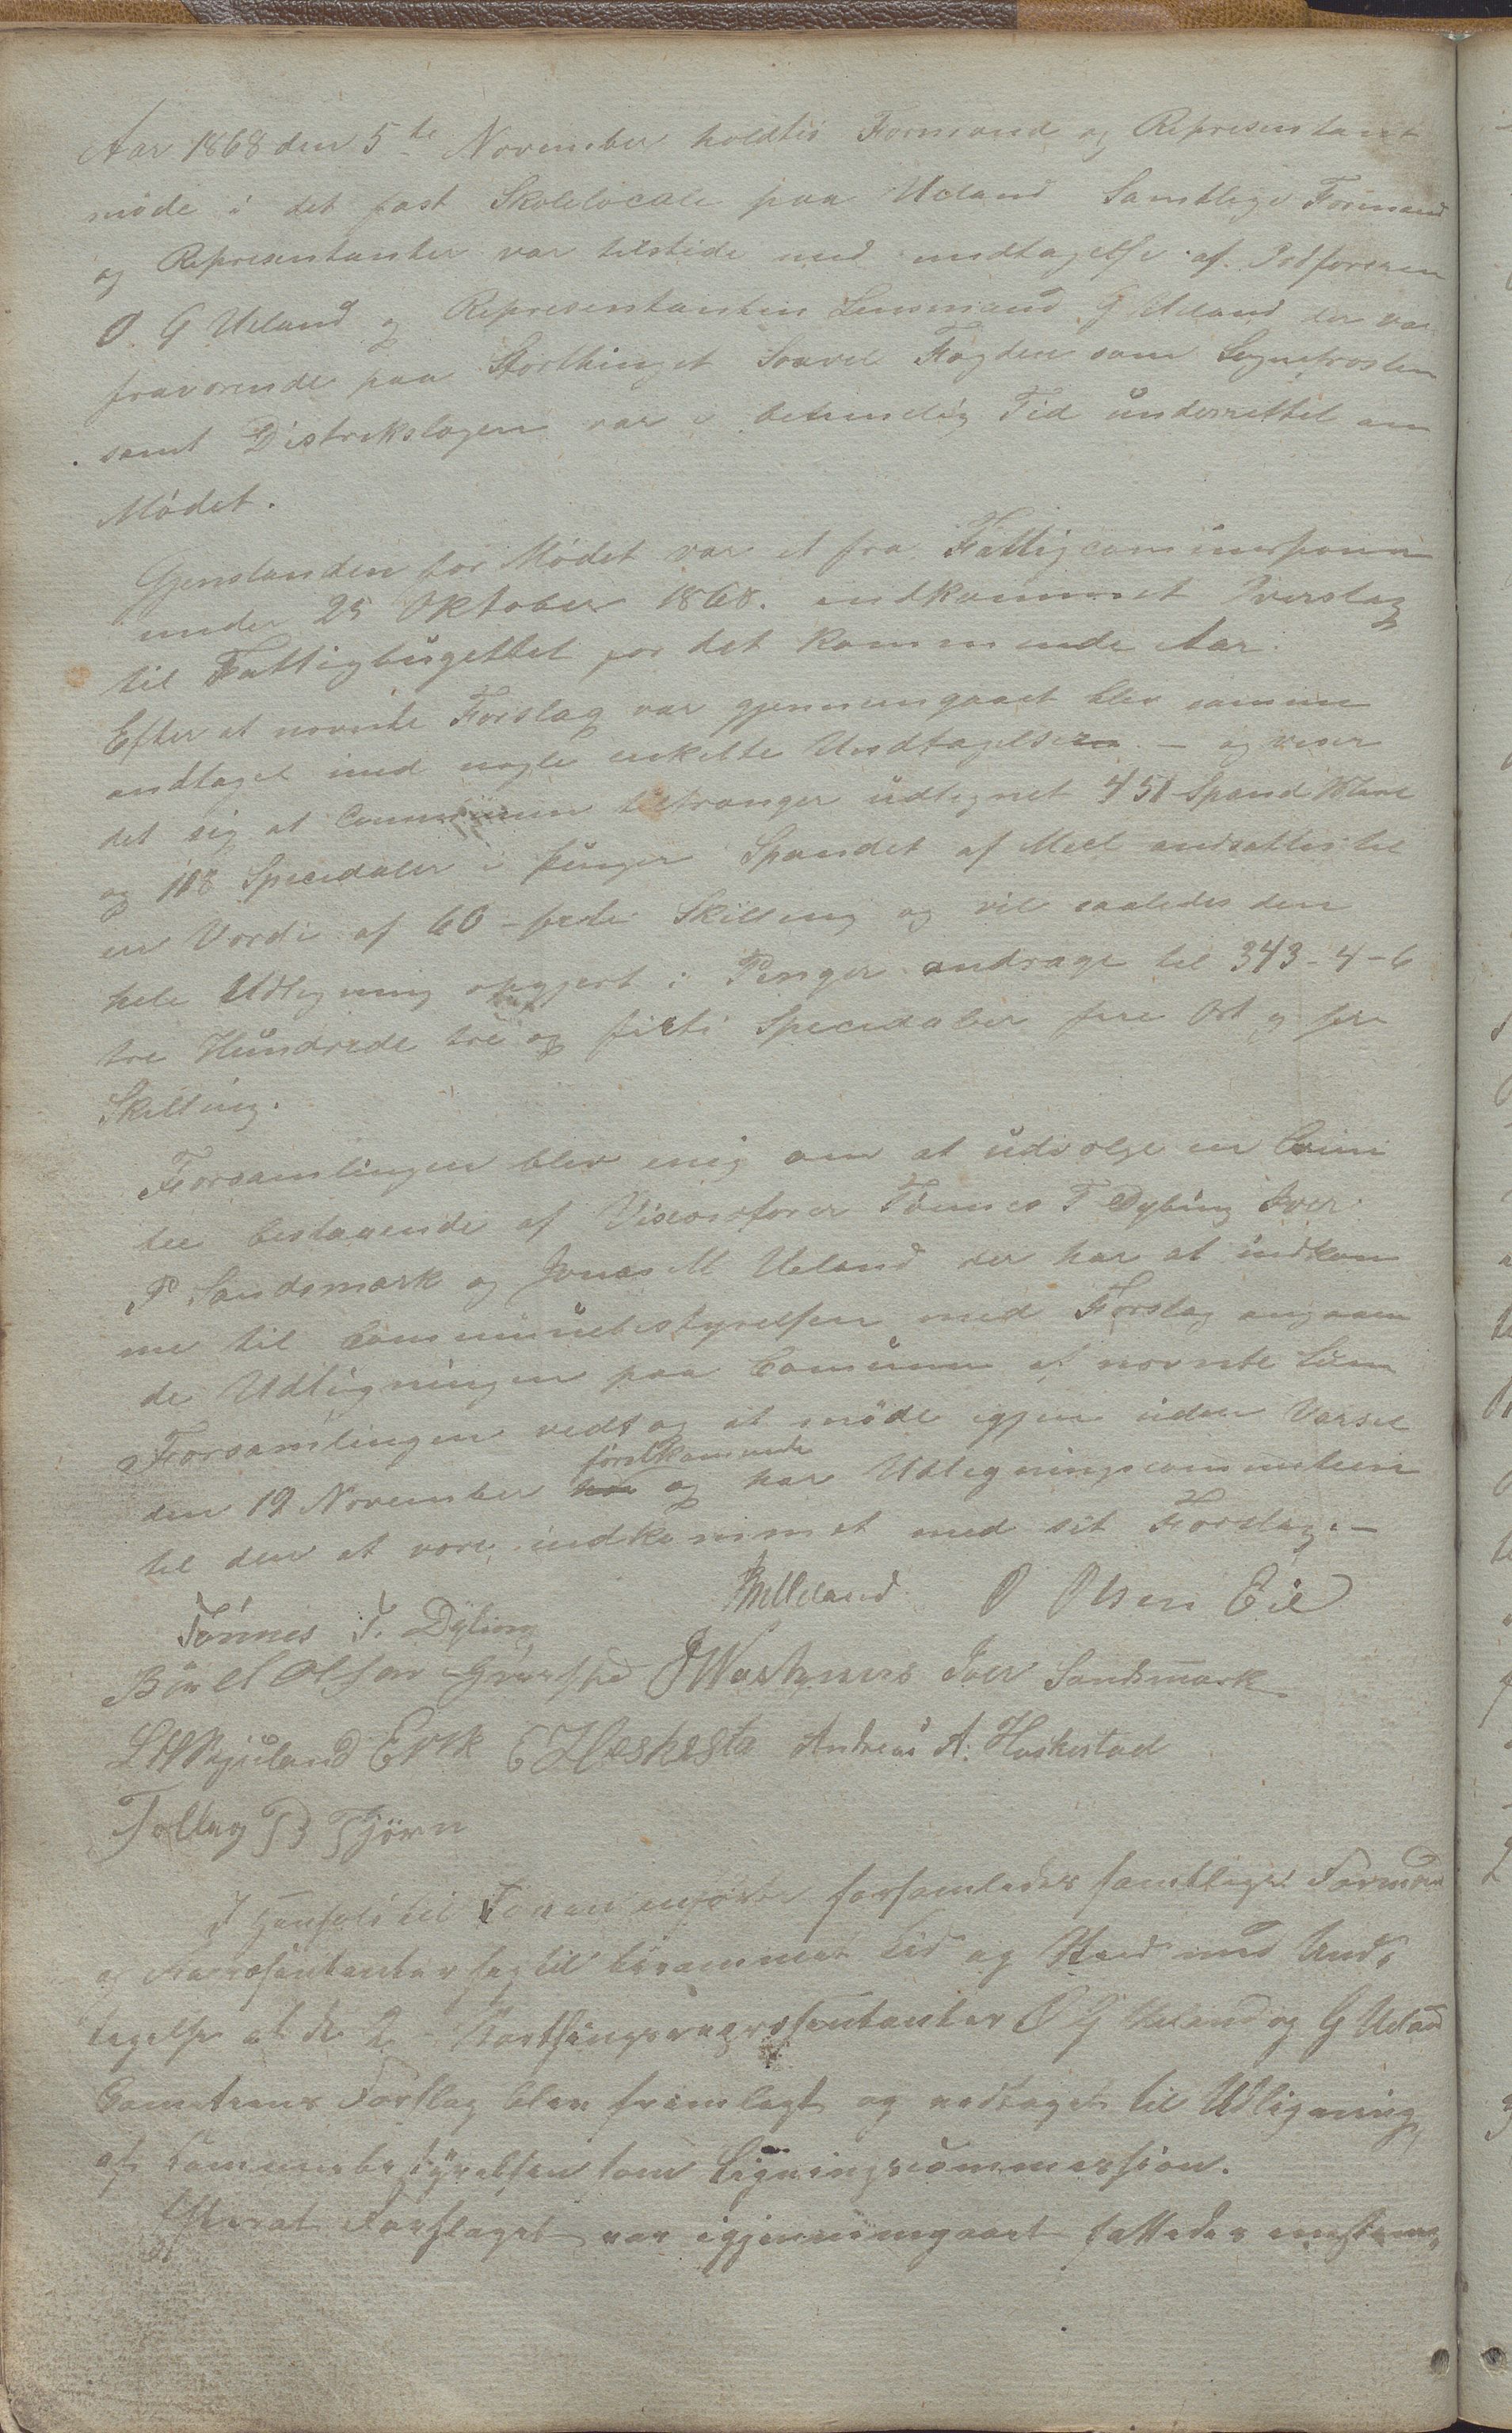 Aar 1868 den 5te November holdtes Formand og Representant
møde i det fast Skolelocale paa Ueland Samtlige Formænd
og Representanter var tilstede med undtagelse af Ordføreren
O. G Ueland og Representanten Lensmand G Ueland der var
fraværende paa Storthinget Saavel Fogden som Sognepresten
samt Distrikslægen var i betimelig Tid underrettet om
Mødet.
Gjenstanden for Mødet var et fra Fattigcommissionen
under 25 Oktober 1868. indkommet Overslag
til Fattigbugettet for det kommende Aar.
Efter at nævnte Forslag var gjennemgaaet blev samme
andtaget med nogle enkelte Undtagelser – og viser
det sig at Communen tiltrænger udlignet 451 Spand Mel
og 118 Specidaler i penger Spandet af Meel andsættes til
en Værdi af 60 – Skilling og vil saaledes den
hele Udligning opgjort i Penger andrage til 343-4-6
tre Hundrede tre og firti Specidaler fire Ort og
Skilling.
Forsamlingen blev enig om at udvælge en Comi
tee bestaaende af Viseordfører Tønnes T Dybing Iver
P Sandsmark og Jonas M Ueland der har at indkom
me til Communebestyrelsen med Forslag angaaen
de Udligningen paa Comunen af nævnte Sum
Forsamlingen vedtog at møde igjen uden Varsel
den 19 November førstkommende og har Udligningscommiteen
til den at være indkommet med sit Forslag. –
Tønnes T. Dybing JMUeland O Olsen Eie
Bøell Olsen JWashuus Iver Sandsmark
LHSkjæland Erik E Heskestad Andreas A. Heskestad
Tolleg B Tjørn
I Henhold til forsamledes samtlige Formænd
og Repræsentanter sig til berammet Tid og Sted med Und-
tagelse af de 2 Storthingsrepræsentanter O G Ueland og G Ueland
Comiteens Forslag blev fremlagt og vedtaget til Udligning
af Communebestyrelsen som Ligningscommission.
Efterat Forslaget var igjennemgaaet fattedes enstem-